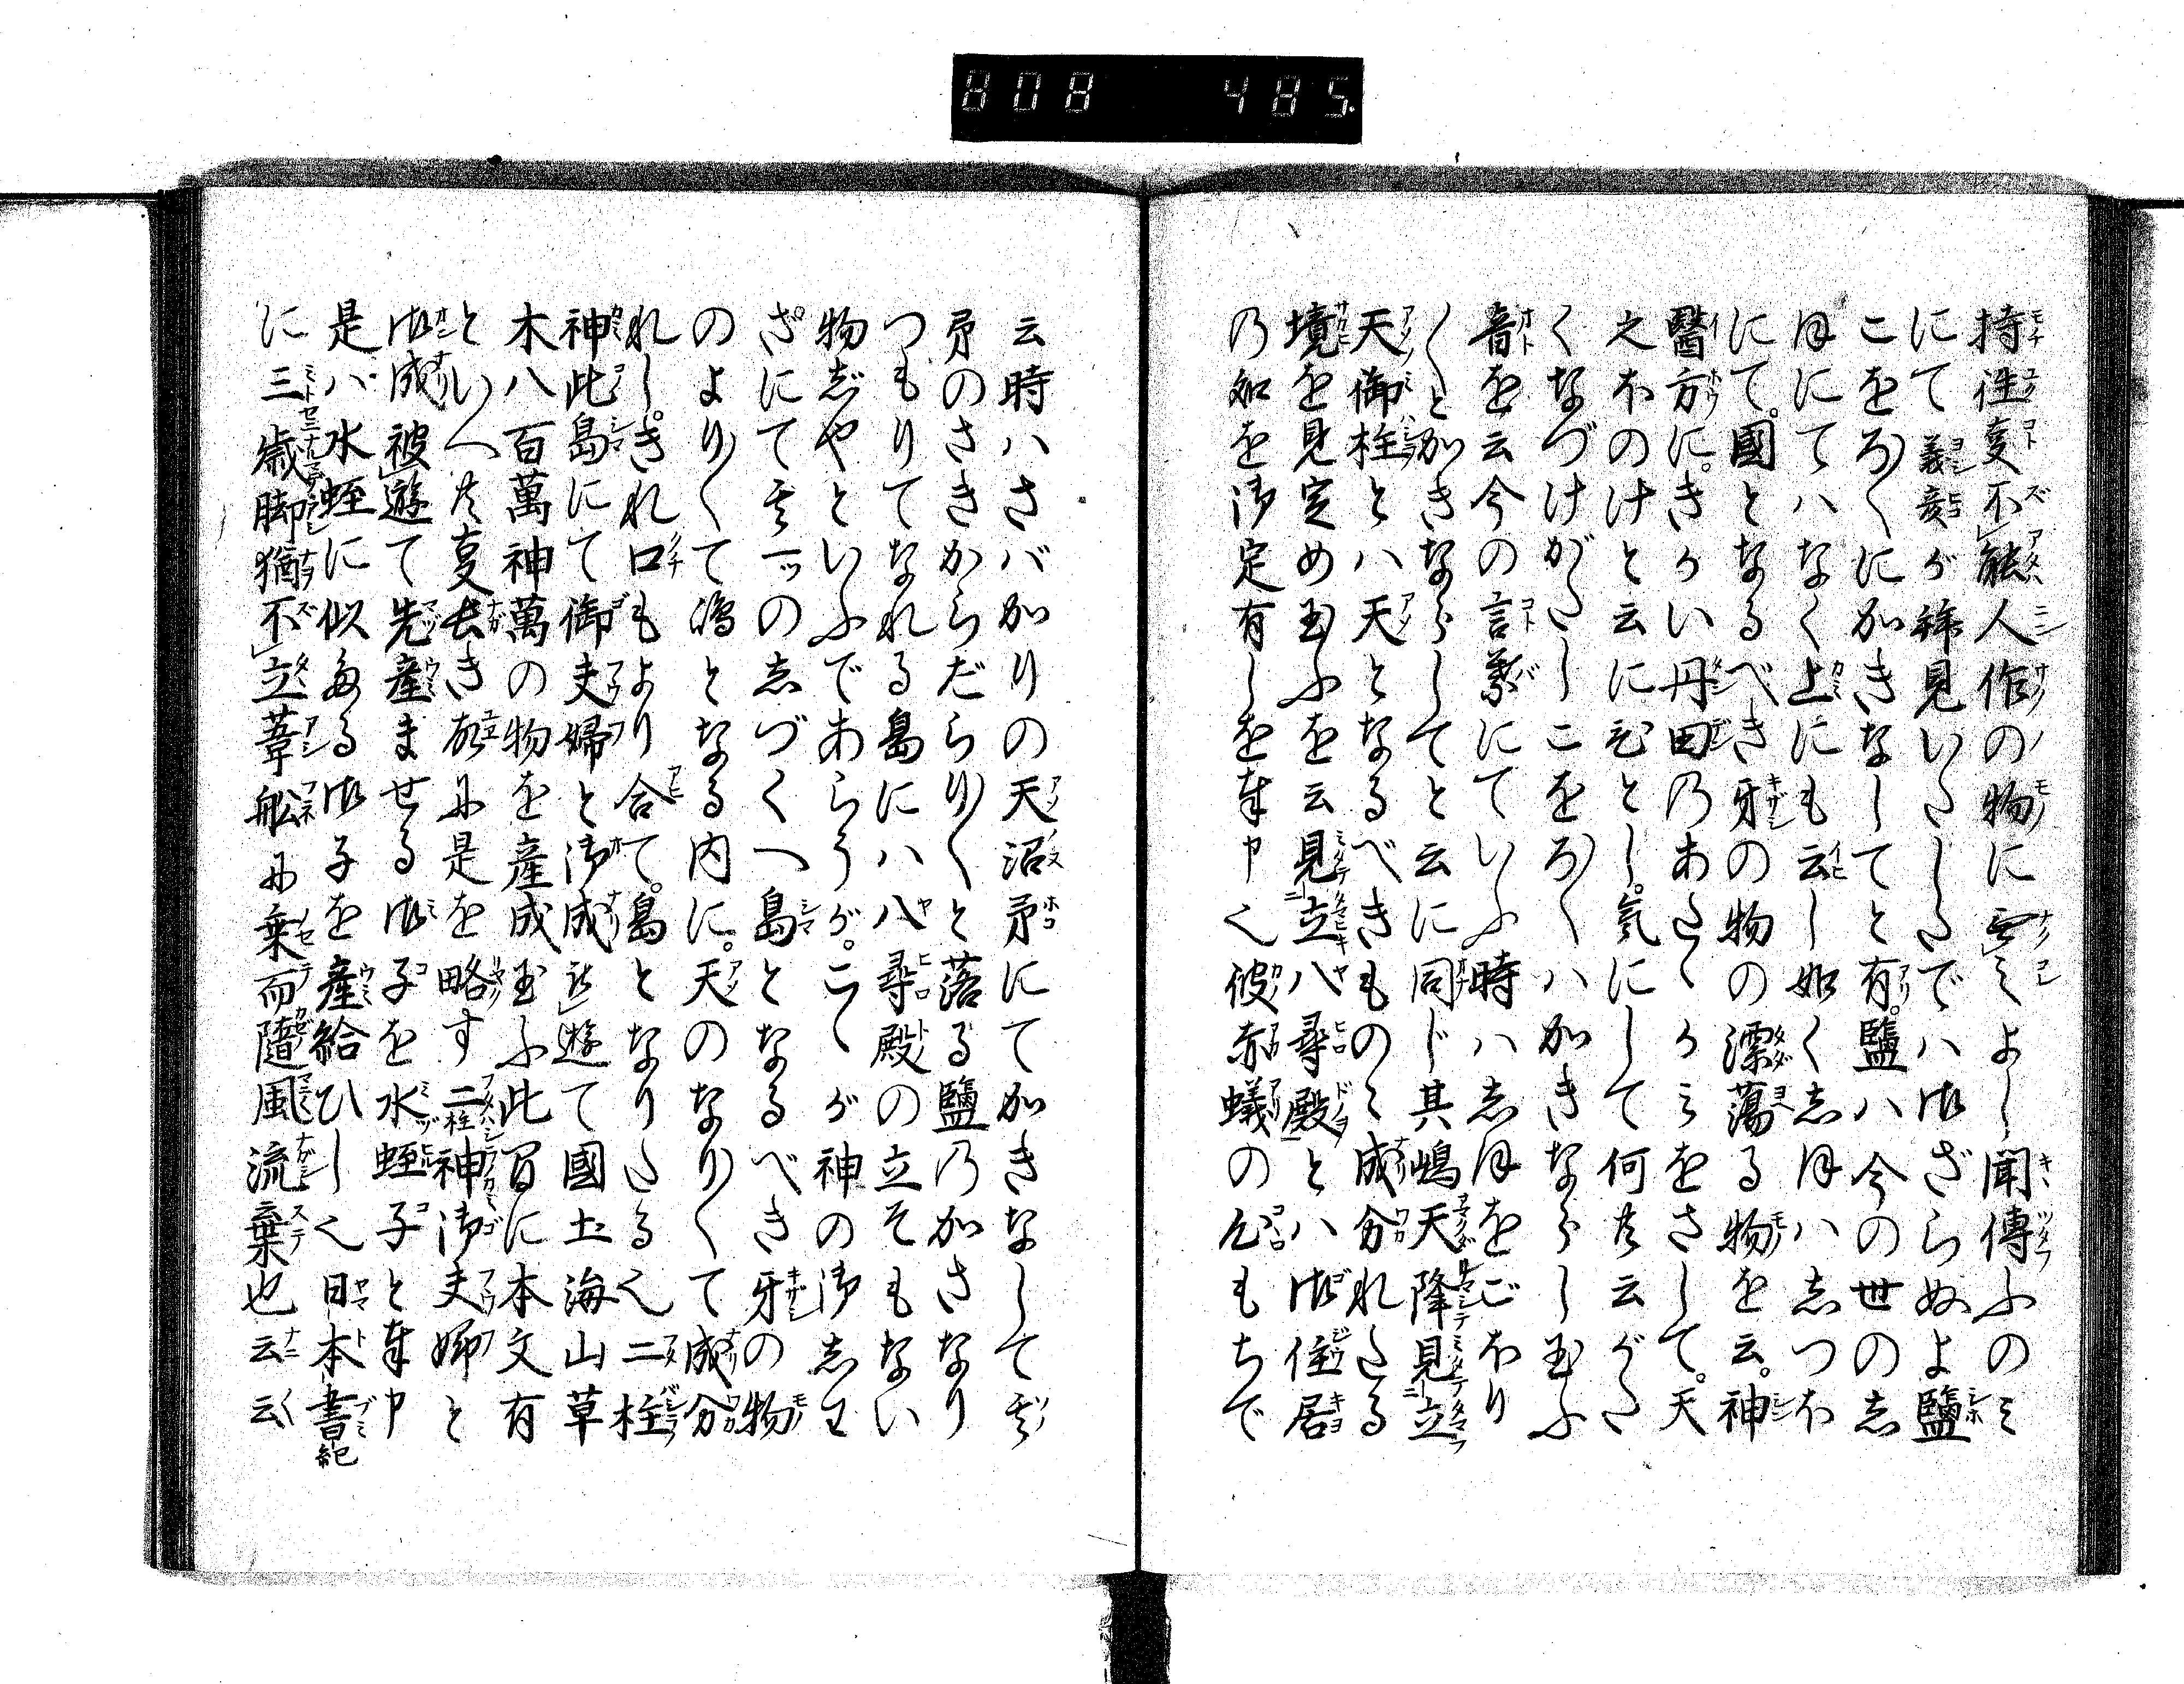 808 485.
持往事不能人作の物に云々よし聞傳ふのミ
にて義彦が拜見いたしたでハ御ざらぬよ鹽
こをろ〱にかきなしてと有。鹽ハ今の世の志
ほにてハなく上にも云し如く志ほハ志つほ
にて。國となるべき牙の物の漂蕩る物を云。神
醫方に。きかい丹田乃あたゝかミをさして。天
之ほのけと云に
くなづけがたしこをろ〱ハかきならし玉ふ
音を云今の言葉にていふ時ハ志ほをごほり
〱とかきならしてと云に同じ其嶋天降見立
天御柱とハ天となるべきものゝ成分れたる
境を見定め玉ふを云見立八尋殿とハ御住居
乃如を御定有しを奉申く彼赤蟻の
云時ハさバかりの天沼矛にてかきなして
矛のさきからだらり〱と落る鹽乃かさなり
つもりてなれる島にハ八尋殿の立そもない
物だやといふであらうが。こゝが神の御志わ
ざにて一ッの志づくへ島となるべき牙の物
のより〱て凝となる内に。天のなり〱て成分
れし。きれ口もより合て。島となりたるく二柱
神此島にて御夫婦と御成遊て國土海山草
木八百萬神萬の物を産成玉ふ此間に本文有
といへ共事長き故に是を略す二柱神御夫婦と
御成被遊て先産ませる御子を水蛭子と奉申
是ハ水蛭に似たる御子を産給ひしく日本書紀
に三歳脚猶不立葦船に乗而隨風流棄也云云